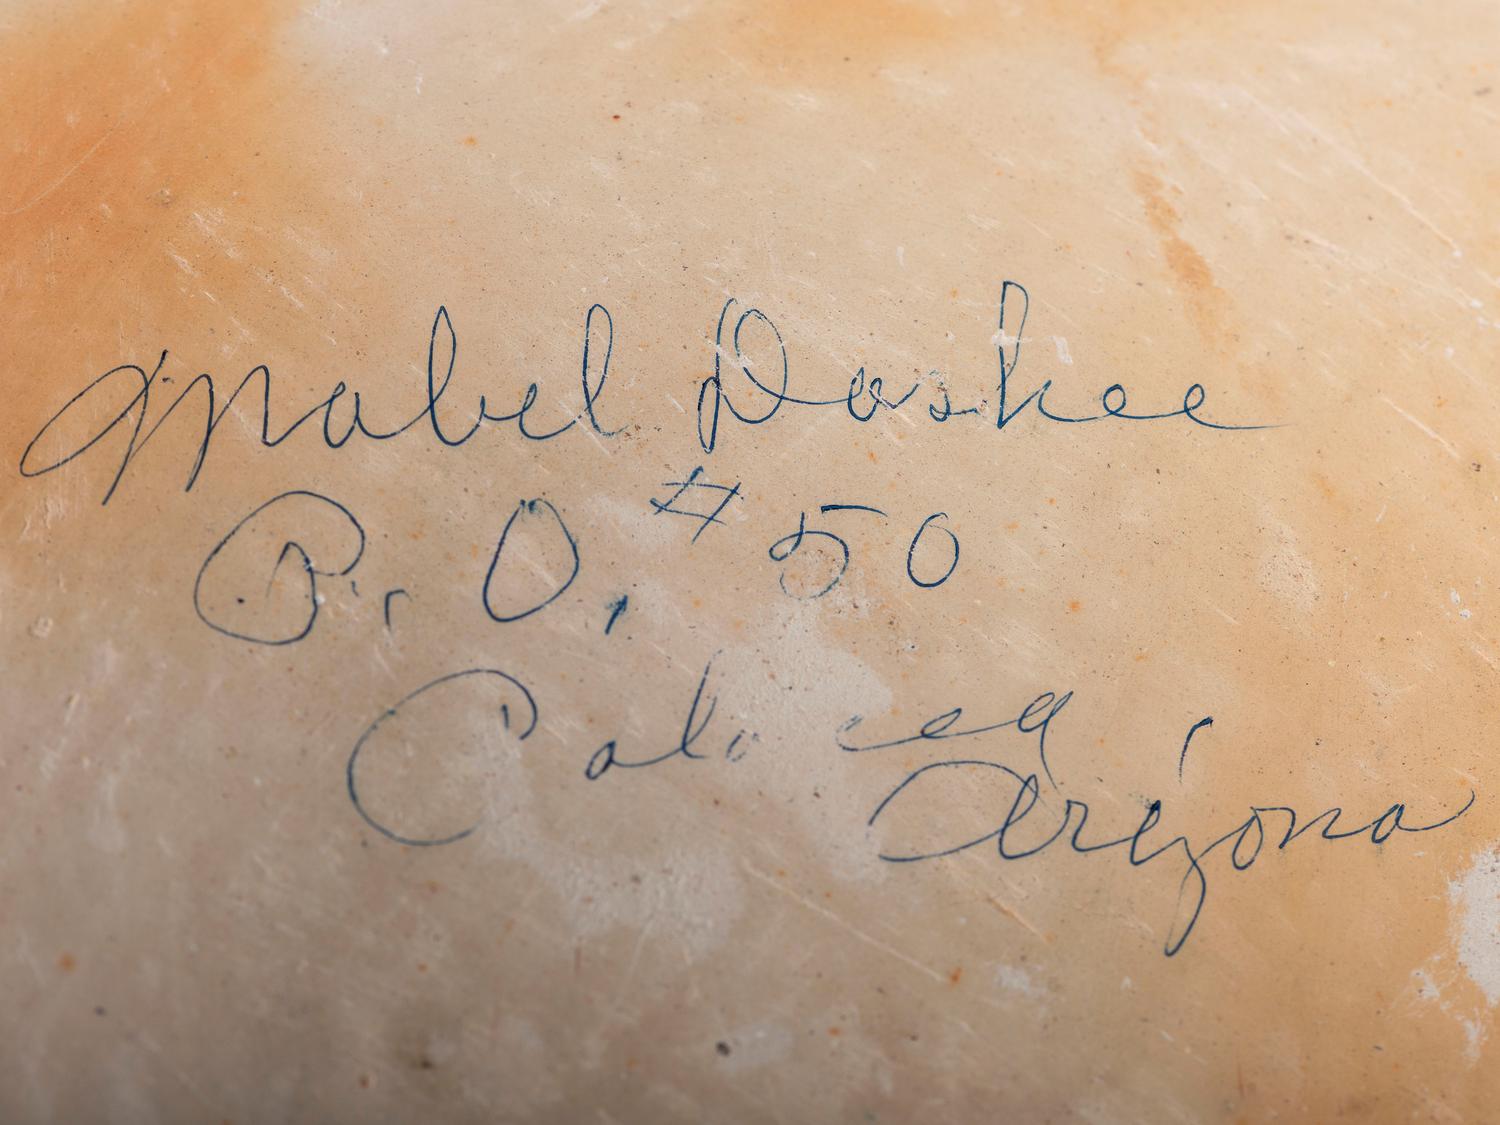 Mabel Dashee
P. O. #50
Polacca,
Arizona